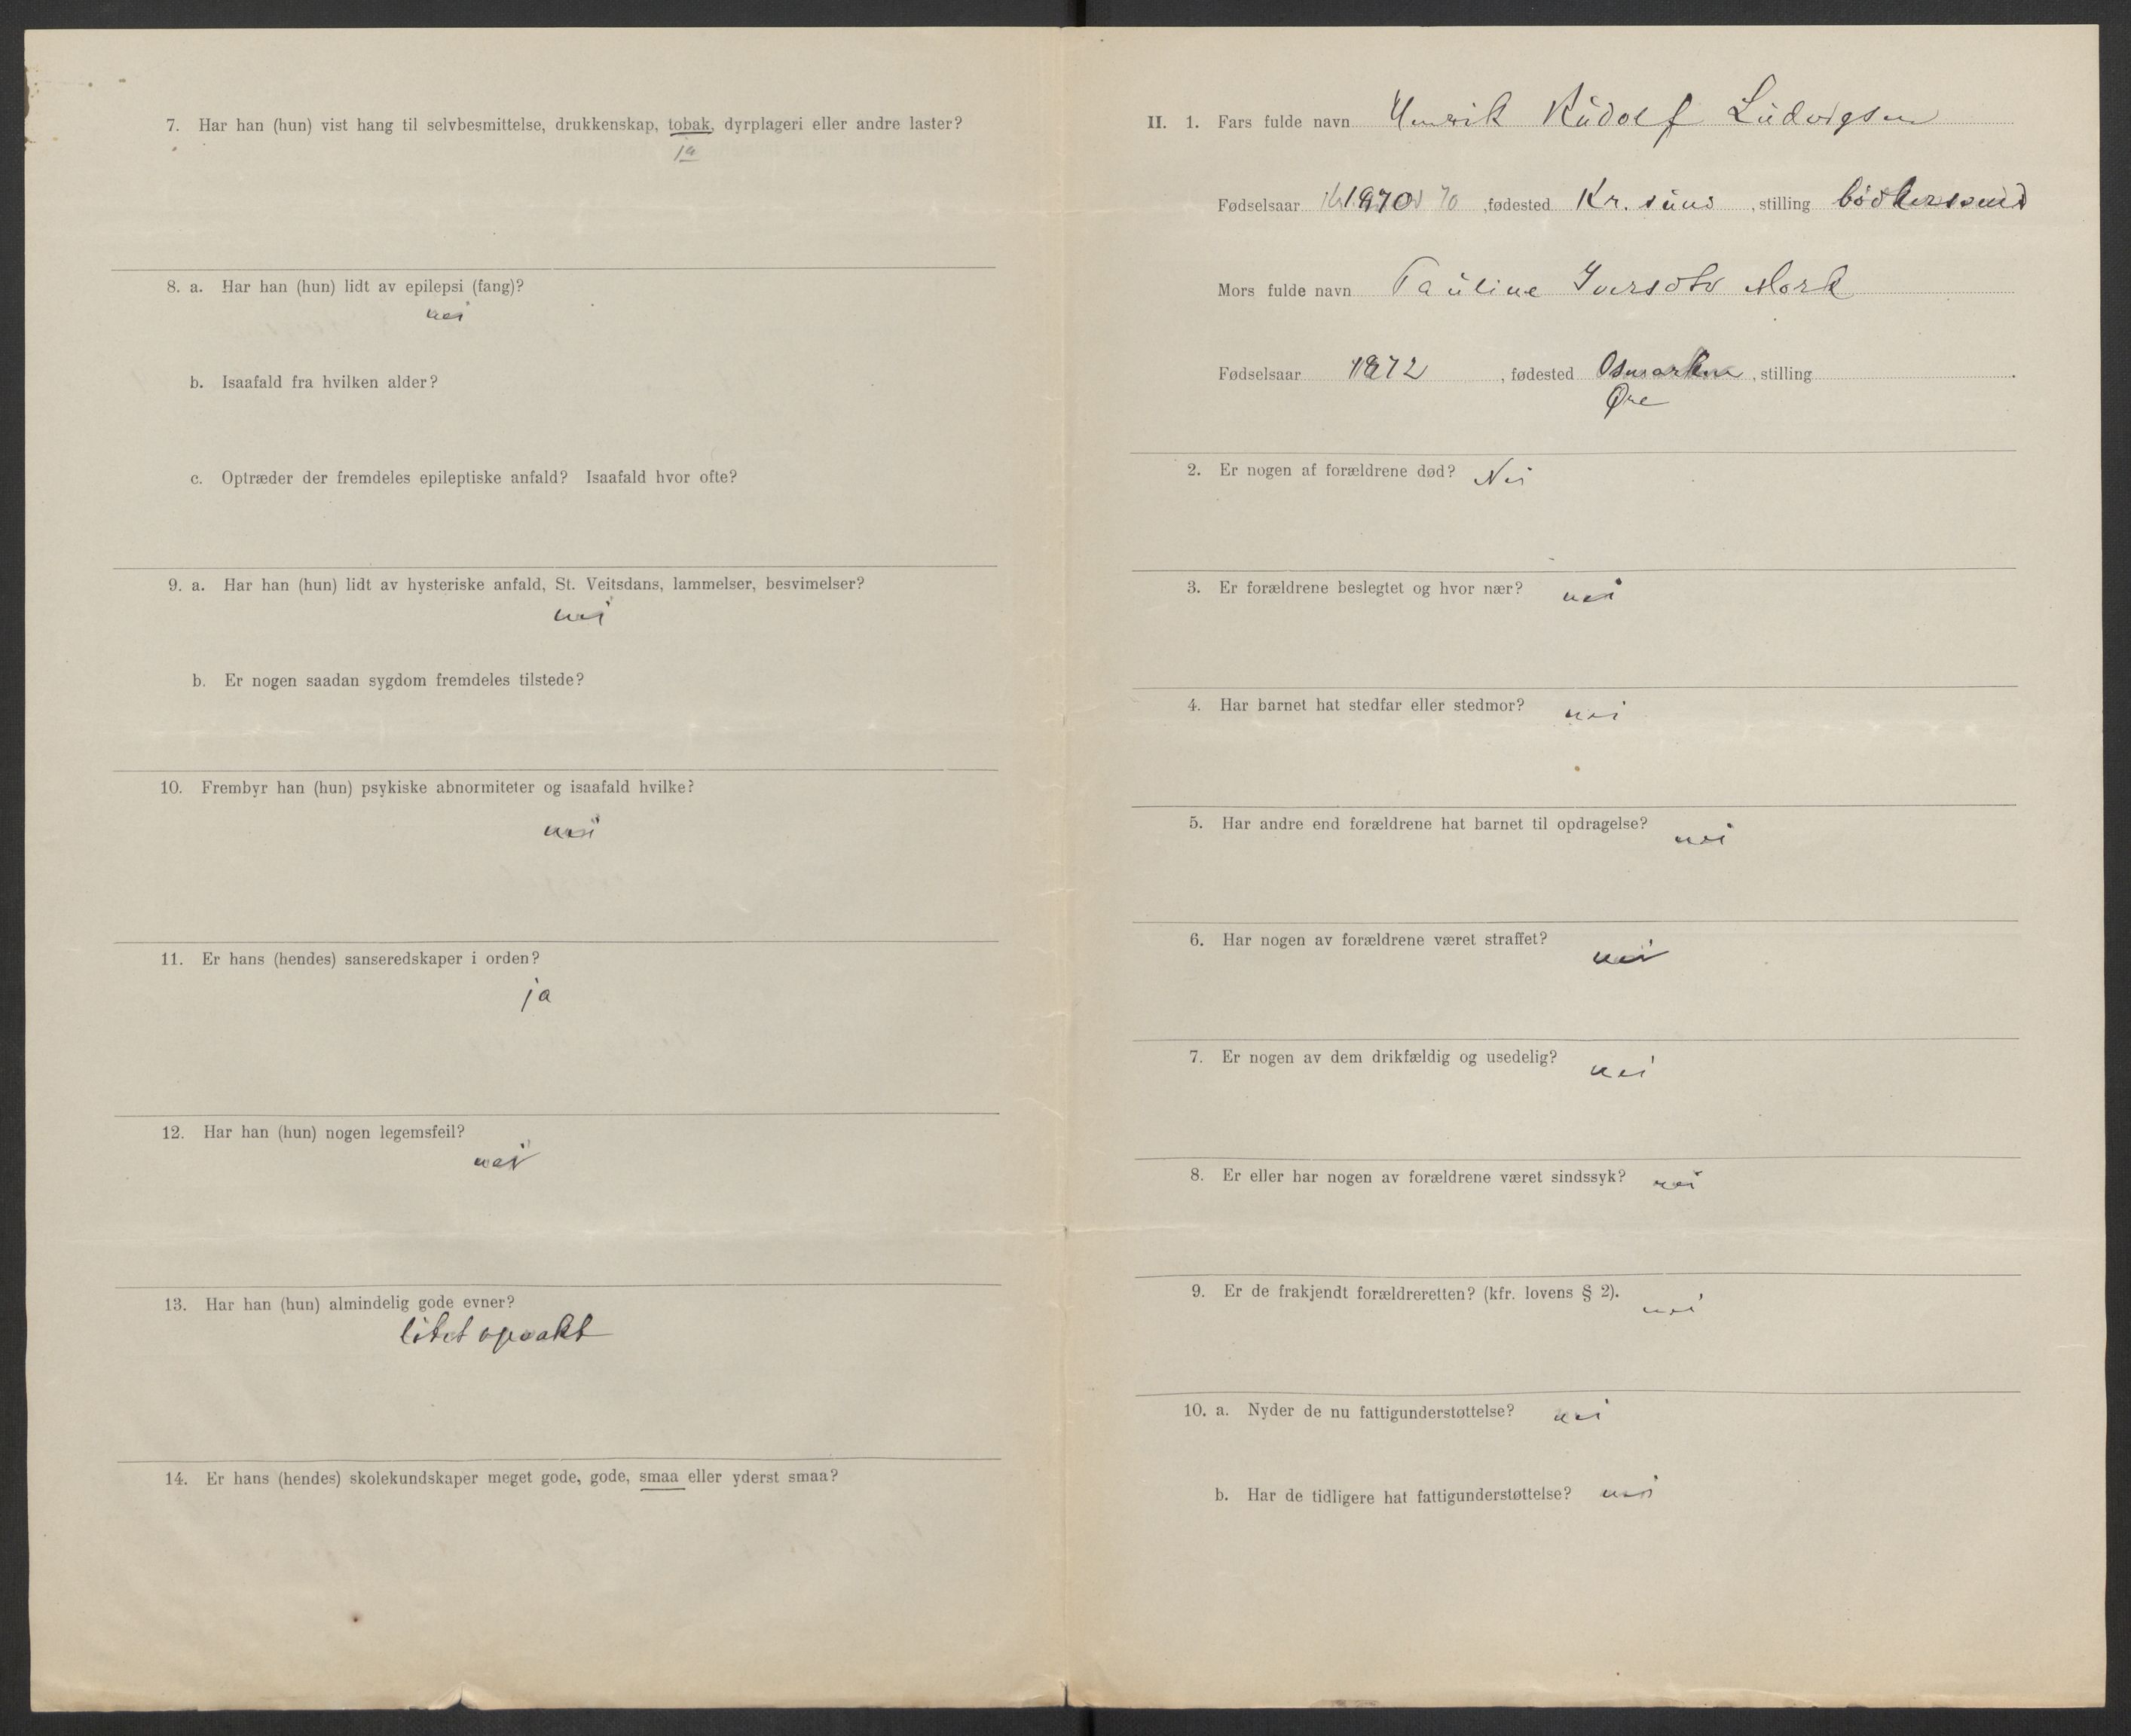 7. Har han (hun) vist hang til selvbesmittelse, drukkenskap, tobak, dyrplageri eller andre laster?
ja
8. a. Har han (hun) lidt av epilepsi (fang)?
nei
b. Isaafald fra hvilken alder?
c. Optræder der fremdeles epileptiske anfald? Isaafald hvor ofte?
9. a. Har han (hun) lidt av hysteriske anfald, St. Veitsdans, lammelser, besvimelser?
nei
b. Er nogen saadan sygdom fremdeles tilstede?
10. Frembyr han (hun) psykiske abnormiteter og isaafald hvilke?
nei
11. Er hans (hendes) sanseredskaper i orden?
ja
12. Har han (hun) nogen legemsfeil?
nei
13. Har han (hun) almindelig gode evner?
litet opvakt
14. Er hans (hendes) skolekundskaper meget gode, gode, smaa eller yderst smaa?
II. 1. Fars fulde navn Henrik Rudolf Ludvigsen
Fødselsaar 1870 70, fødested Kr. sund, stilling bødkersvend
Mors fulde navn Pauline Iversdtr Mork
Fødselsaar 1872, fødested Osmarken, stilling
Øre
2. Er nogen af forældrene død? Nei
3. Er forældrene beslegtet og hvor nær? nei
4. Har barnet hat stedfar eller stedmor? nei
5. Har andre end forældrene hat barnet til opdragelse? nei
6. Har nogen av forældrene været straffet? nei
7. Er nogen av dem drikfældig og usedelig? nei
8. Er eller har nogen av forældrene været sindssyk? nei
9. Er de frakjendt forældreretten? (kfr. lovens § 2). nei
10. a. Nyder de nu fattigunderstøttelse? nei
b. Har de tidligere hat fattigunderstøttelse? nei